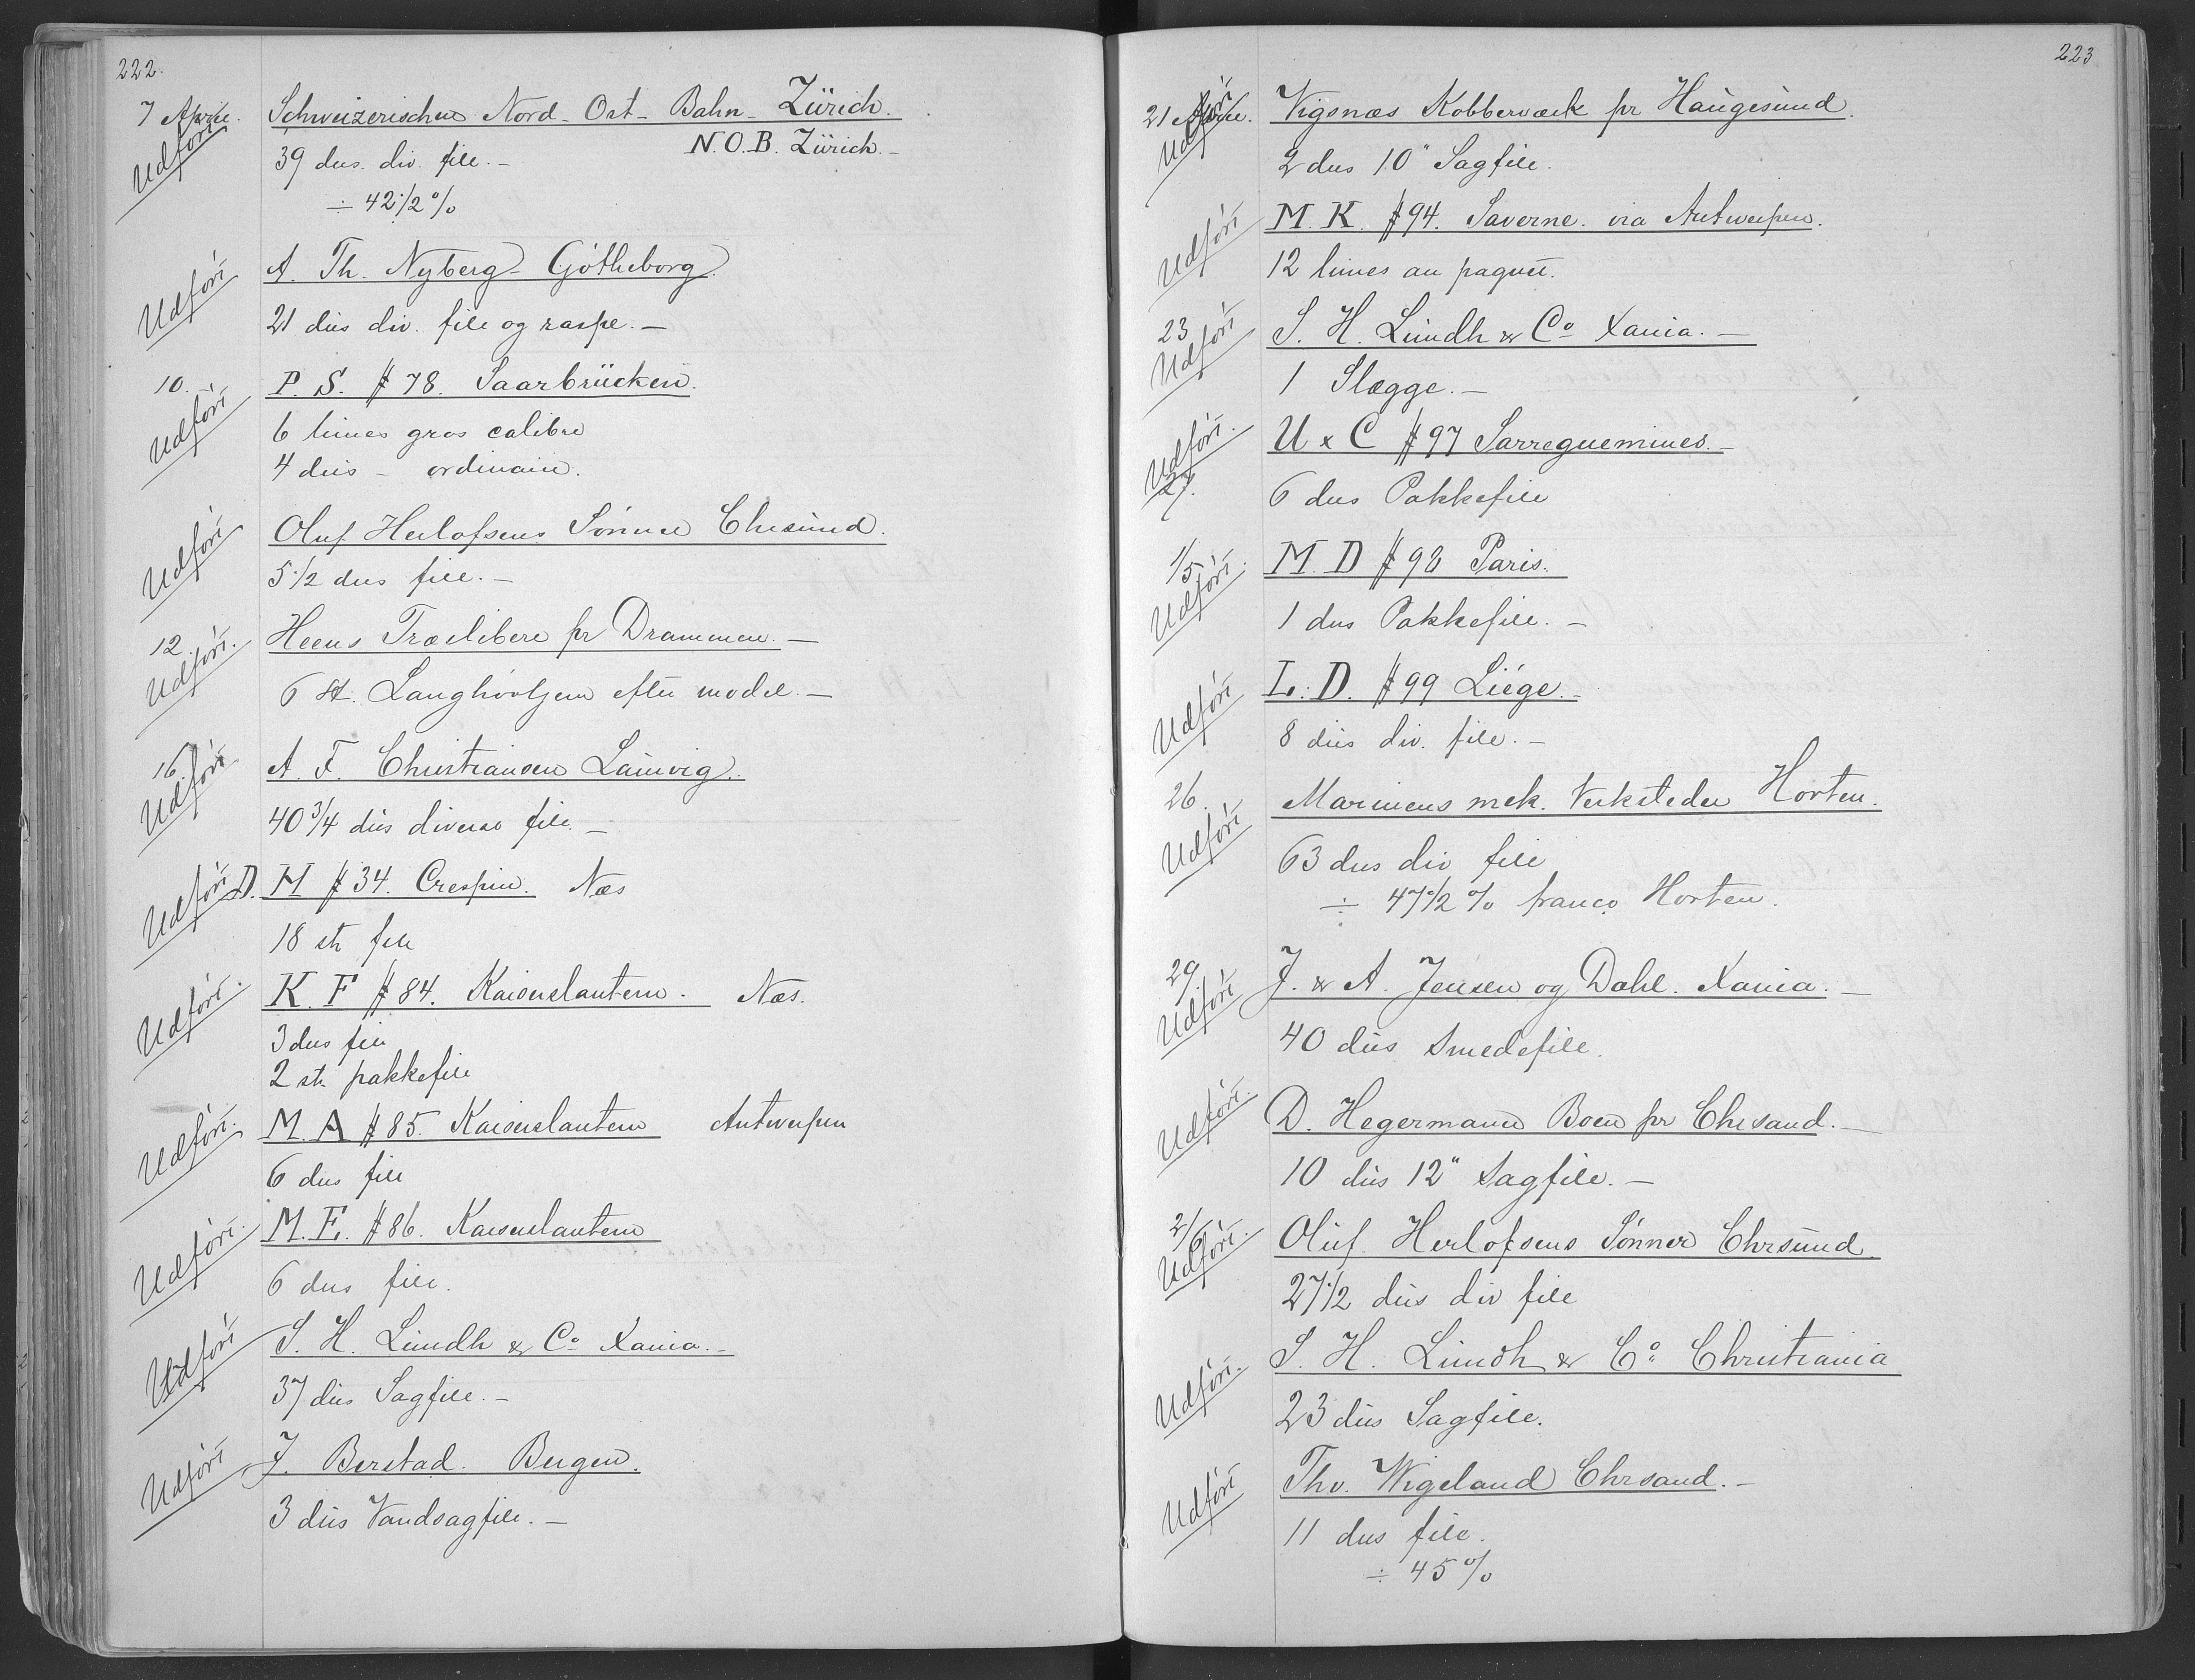 222.
7 April. Schweizerischen Nord-Ost-Bahn-Zürich.
Udført
39 dus. div. file.— N.O.B. Zürich.—
÷ 42 1/2 %
Udført A. Th. Nyberg - Gøtheborg.
21 dus div. file og raspe.—
10. P. S. # 78. Saarbrücken.
Udført
6 limes gros calibre
4 dus — ordinaire.
Udført Oluf Herlofsens Sønner Chrsund.
5 1/2 dus file.—
12. Heens Træsliberi pr Drammen.—
Udført.
6 st. Langhøvljern efter model.—
16. A. F. Christiansen Laurvig.
Udført
40 3/4 dus diverse file.—
Udført D. H # 34. Crespin. Næs
18 st file
Udført. K. F # 84. Kaiserslautern. Næs.
3 dus file
2 st. pakkefile
Udført. M. A # 85. Kaiserslautern Antwerpen
6 dus file
Udført. M. E. # 86. Kaiserslautern
6 dus file.
Udført S. H. Lundh & Co Xania.—
37 dus Sagfile.—
Udført J. Berstad. Bergen.
3 dus Vandsagfile.—
223
21 April. Vigsnæs Kobberværk pr Haugesund.
Udført
2 dus 10" Sagfile.
Udført M. K. # 94. Saverne. via Antwerpen.
12 limes au paquet.
23 S. H. Lundh & Co Xania.—
Udført
1 Slægge.—
Udført. U & C # 97 Sarreguemines.—
27.
6 dus Pakkefile
1/5. M. D # 98 Paris.
Udført
1 dus Pakkefile.—
Udført L. D. # 99 Liége.—
8 dus div. file.—
26. Marinens mek. Verksteder Horten.
Udført
63 dus div file
÷ 47 1/2 % franco Horten.
29. J. & A. Jensen og Dahl. Xania.—
Udført
40 dus Smedefile.
Udført. D. Hegermann Boen pr Chrsand.—
10 dus 12" Sagfile.—
2/6 Oluf Herlofsens Sønner Chrsund
Udført.
27 1/2 dus div file
Udført. S. H. Lundh & Co Christiania
23 dus Sagfile.
Udført Thv. Wigeland Chrsand.—
11 dus file.
÷ 45 %